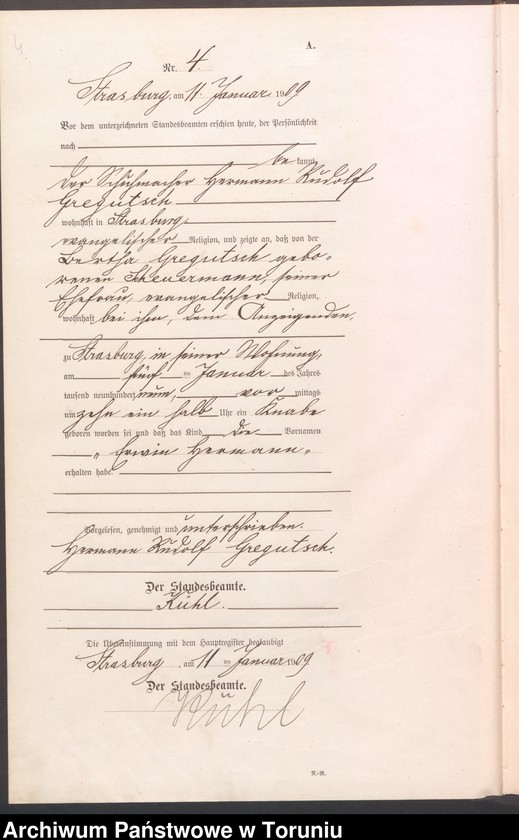 A.
Nr. 4.
Strasburg, am 11. Januar 1909.
Vor dem unterzeichneten Standesbeamten erschien heute, der Persönlichkeit
nach
be kannt,
der Schuhmacher Hermann Rudolf
Gregutsch
wohnhaft in Strasburg,
evangelischer Religion, und zeigte an, daß von der
Bertha Gregutsch gebo-
renen Steuermann, seiner
Ehefrau, evangelischer Religion,
wohnhaft bei ihm, dem Anzeigenden,
zu Strasburg, in seiner Wohnung,
am fünf ten Januar des Jahres
tausend neunhundert neun, vor mittags
um zehn ein halb Uhr ein Knabe
geboren worden sei und daß das Kind die Vornamen
„Erwin Hermann"
erhalten habe.
Vorgelesen, genehmigt und unterschrieben.
Hermann Rudolf Gregutsch.
Der Standesbeamte.
Kühl.
Die Übereinstimmung mit dem Hauptregister beglaubigt
Strasburg, am 11 ten Januar 1909
Der Standesbeamte.
Kühl
R.-R.
Archiwum Państwowe w Toruniu